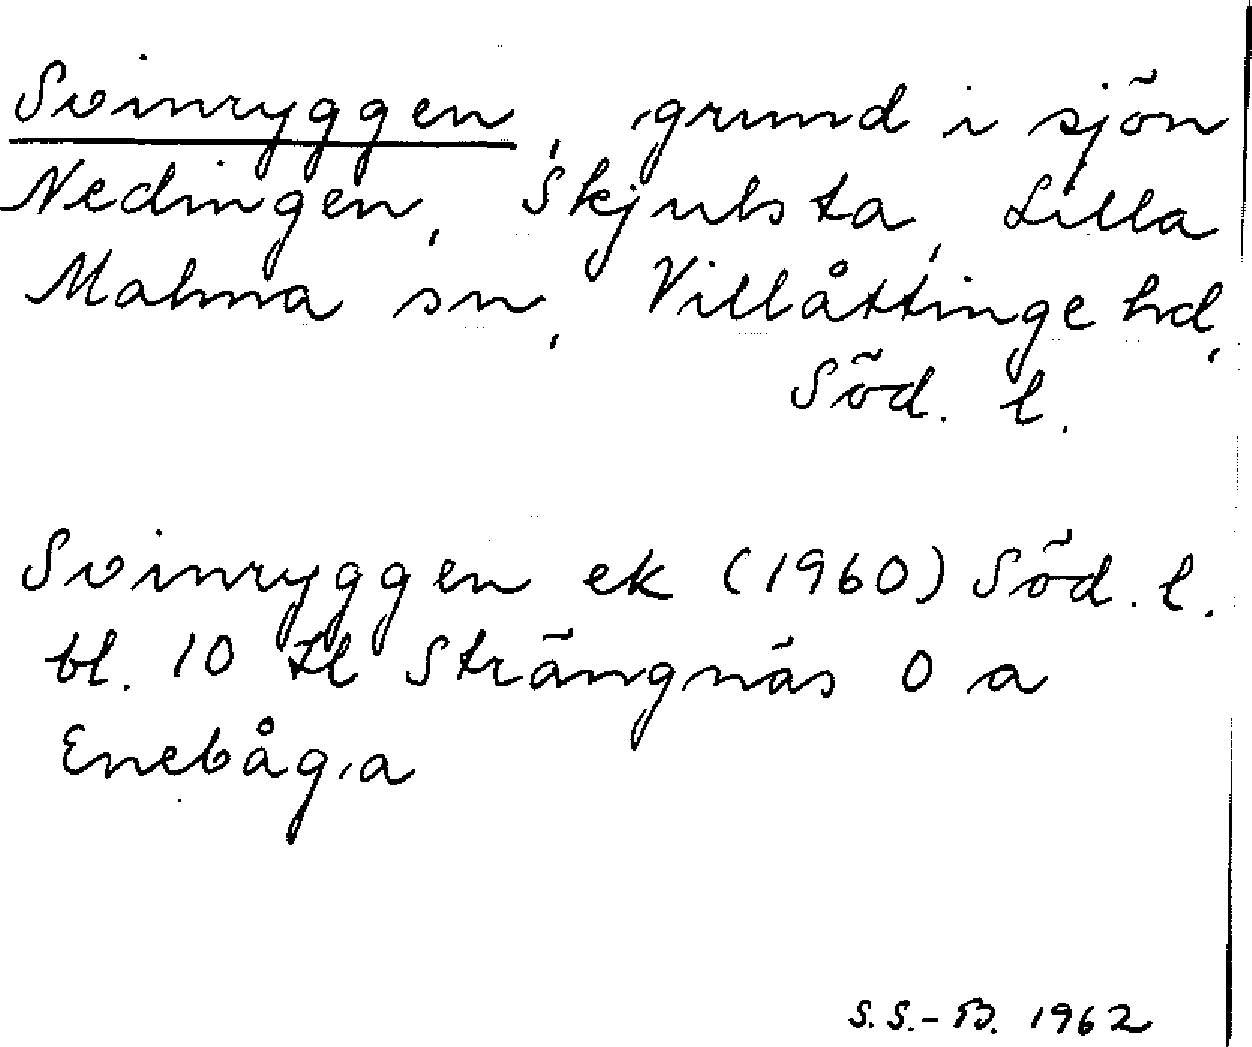 Svinryggen, grund i sjön
Nedingen, Skjulsta, Lilla
Malma sn, Villåttinge hd,
Söd. l.
Svinryggen ek (1960) Söd. l.
bl. 10 Strängnäs O a
Enebåga
S.S.-B. 1962